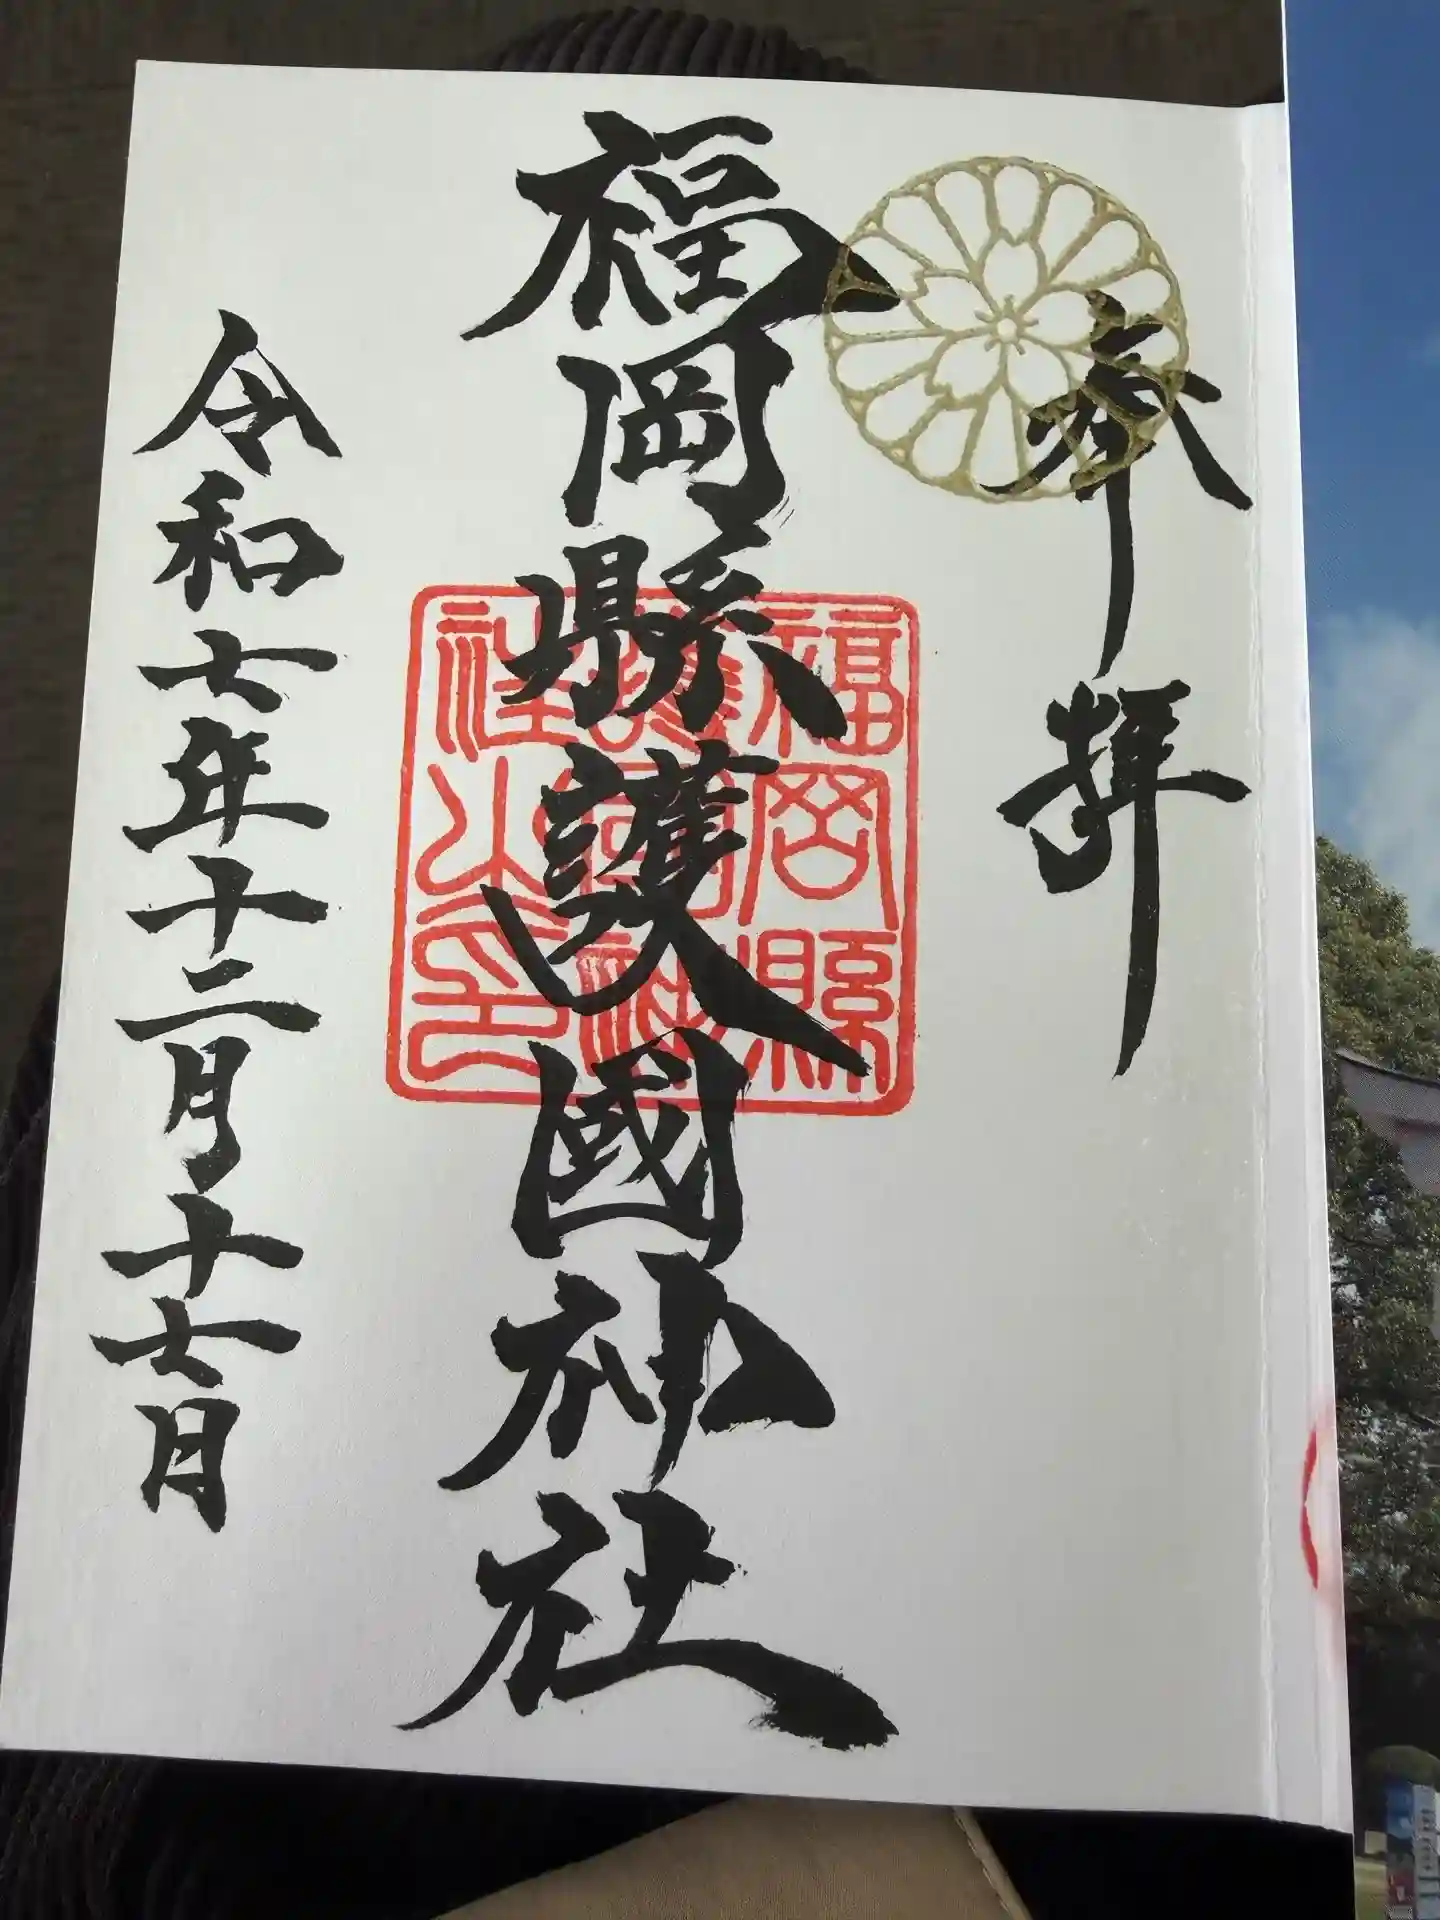 奉拝
福岡縣護國神社
福岡縣
護國神
社之印
令和七年十二月十七日